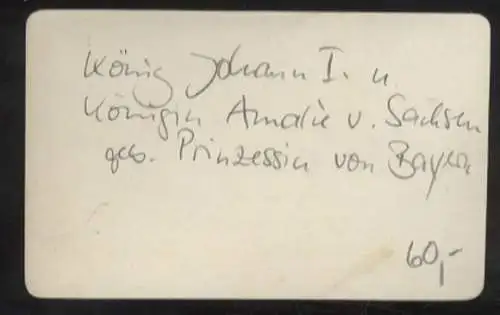 König Johann I. u.
Königin Amalie v. Sachsen
geb. Prinzessin von Bayern
60,-